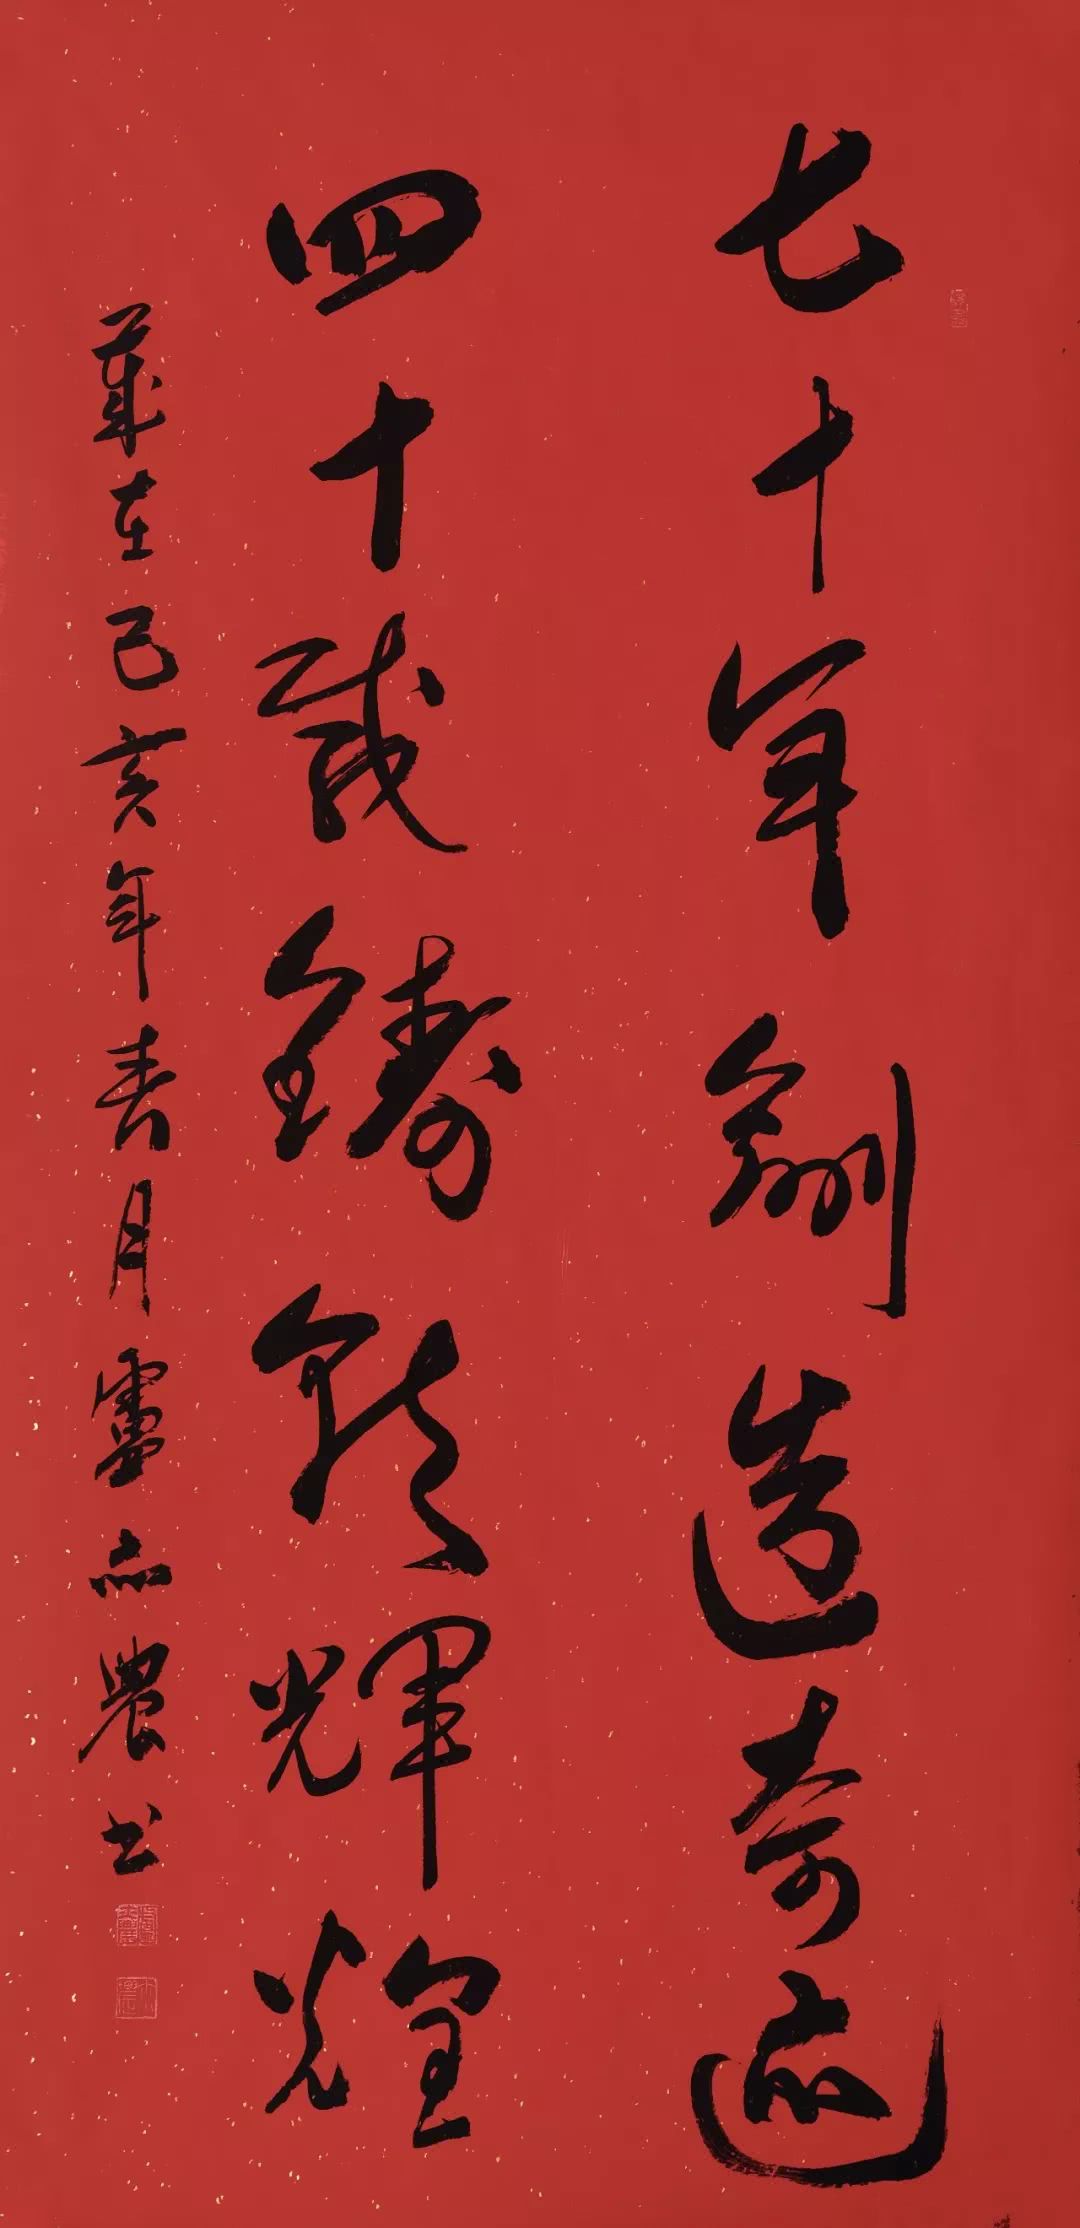 七十年創造奇迹
四十載鑄就輝煌
歲在己亥年春月盧亦農书